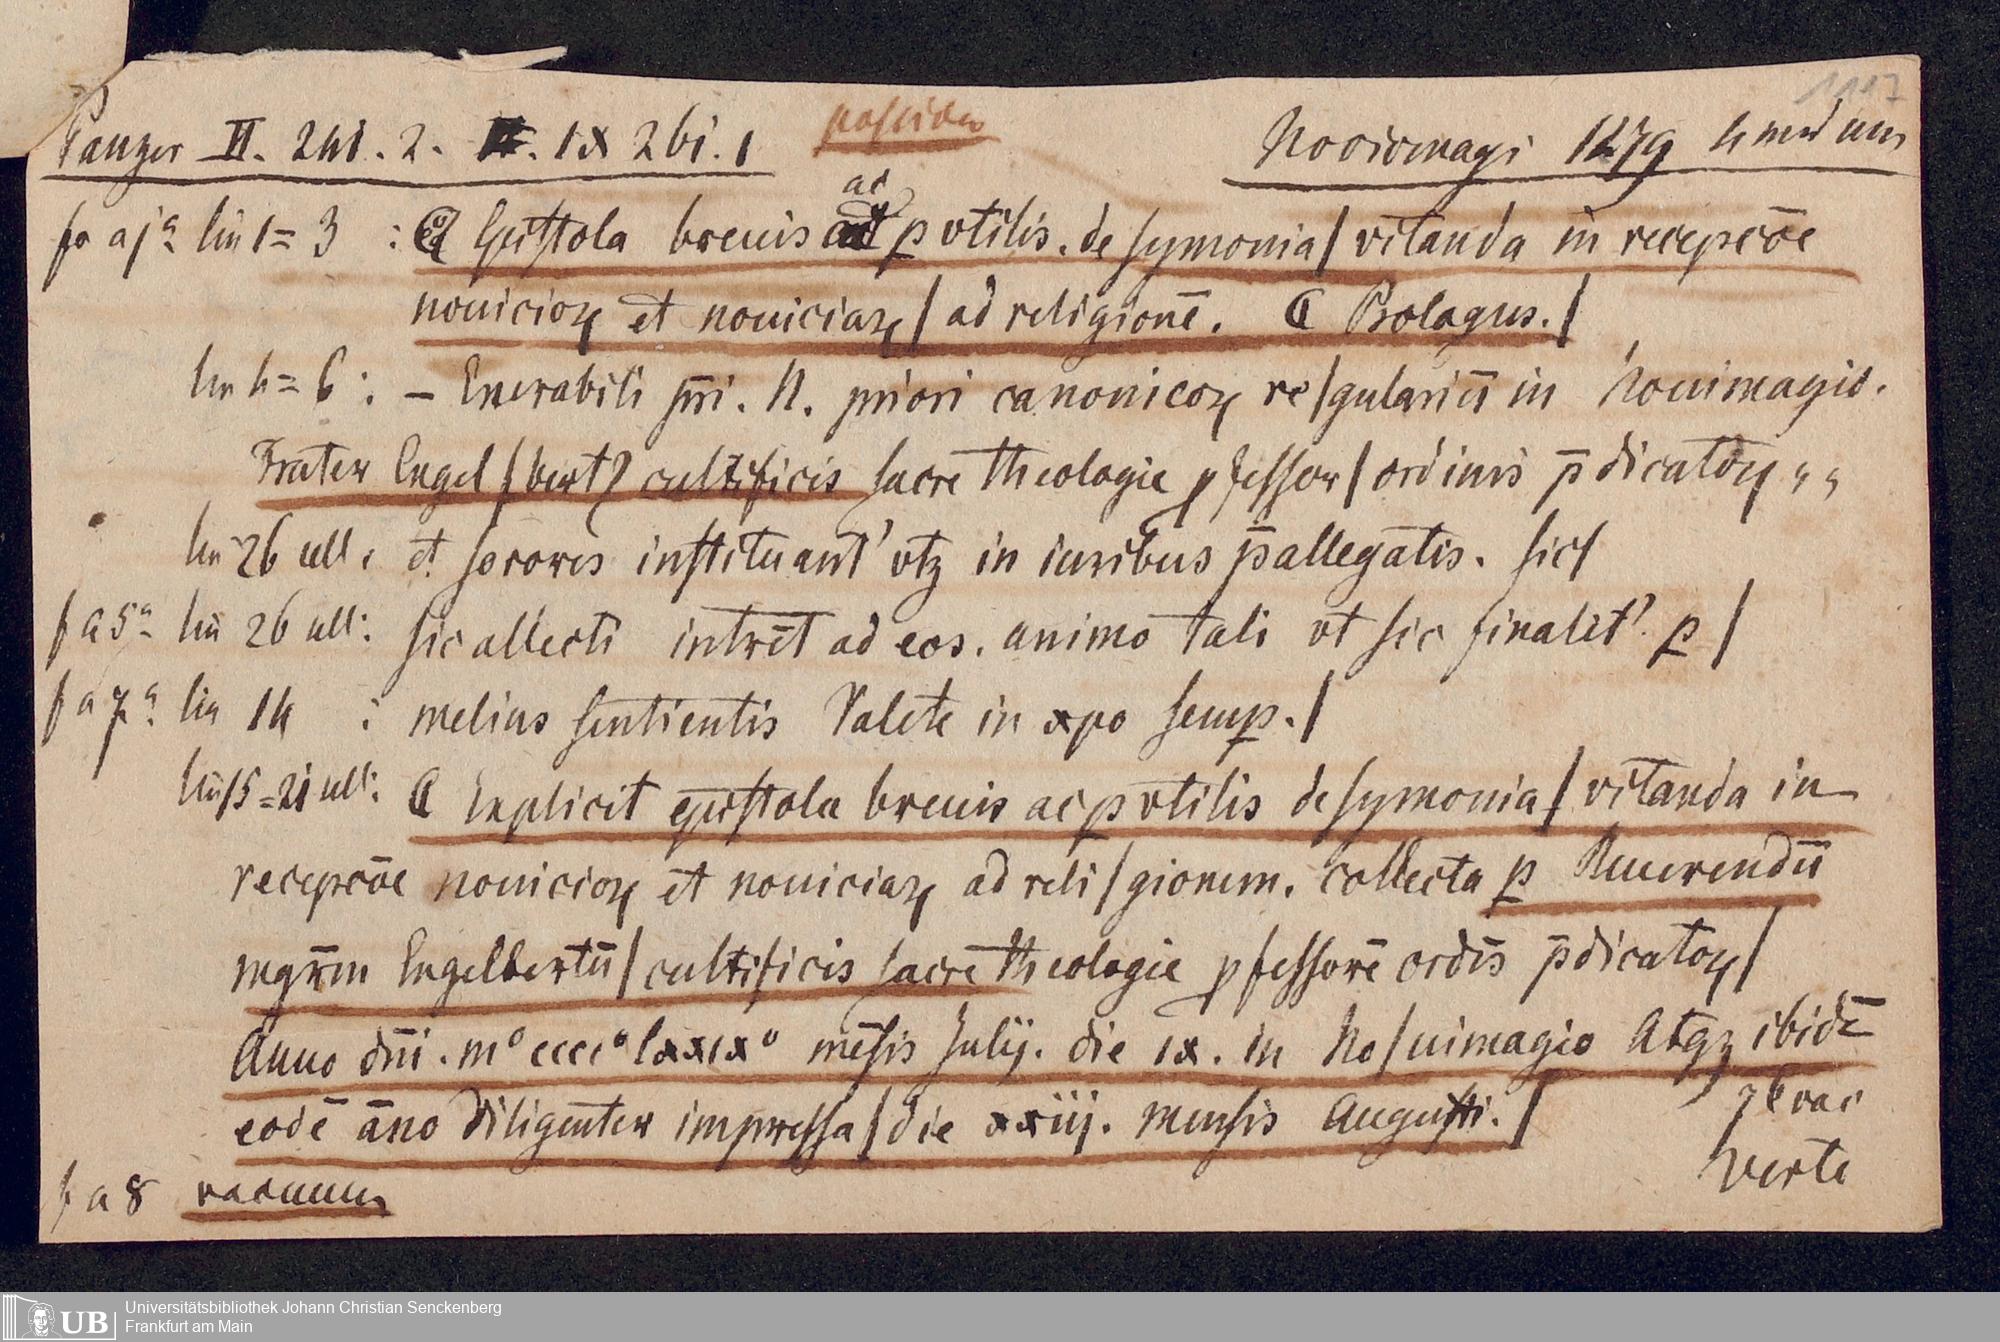 1117
Panzer II. 241. 2. IX 261. 1 possideo Noviomagi 1479
fo aj a lin 1=3 : ℂ Epistola breuis ac ꝑ vtilis. de symonia/vitanda in recepcōe
nouicioꝝ et nouiciaꝝ/ad religionē. ℂ Prologus./
lin 4=6 : – Enerabili pr̄i. N. priori canonicoꝝ re/gulariū in Nouimagio.
Frater Engel/bertꝰ cultificis sacre theologie ꝓfessor/ordinis p̄dicatoꝝ „
lin 26 ult : et sorores instituant' vtꝫ in iuribus p̄allegatis. sic/
f a5a lin 26 ult: sic allecti intrēt ad eos. animo tali vt sic finalit'. ꝑ/
f a7a lin 14 : melius sentientis Valete in xpo semꝑ./
lin 15=21 ult: ℂ Explicit epistola breuis ac ꝑ vtilis de symonia/vitanda in
recepcōe nouicioꝝ et nouiciaꝝ ad reli/gionem. collecta ꝑ Reuerendū
mgr̄m Engelbertū/cultificis sacre theologie ꝓfessorē ordīs p̄dicatoꝝ/
Anno dn̄i. m° cccc° lxxix° mēsis Julij. die ix. in No/uimagio Atqꝫ ibidē
eodē āno diligenter impressa/die xxiij. mensis Augusti./ 7b vac
f a 8 vacuum verte
UB Universitätsbibliothek Johann Christian Senckenberg
Frankfurt am Main